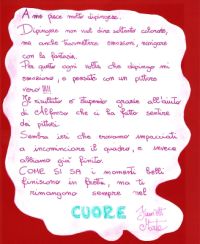 A me piace molto dipingere.
Dipingere non vuol dire soltanto colorare,
ma anche trasmettere emozioni, navigare
con la fantasia.
Per questo ogni volta che dipingo mi
emoziono, e perciò con un pittore
vero!!!!
Il risultato è stupendo grazie all'aiuto
di Alfonso che ci ha fatto sentire
dei pittori.
Sembra ieri che eravamo impacciati
a incominciare il quadro, e invece
abbiamo già finito.
COME SI SA i momenti belli
finiscono in fretta, ma ti
rimangono sempre nel
CUORE